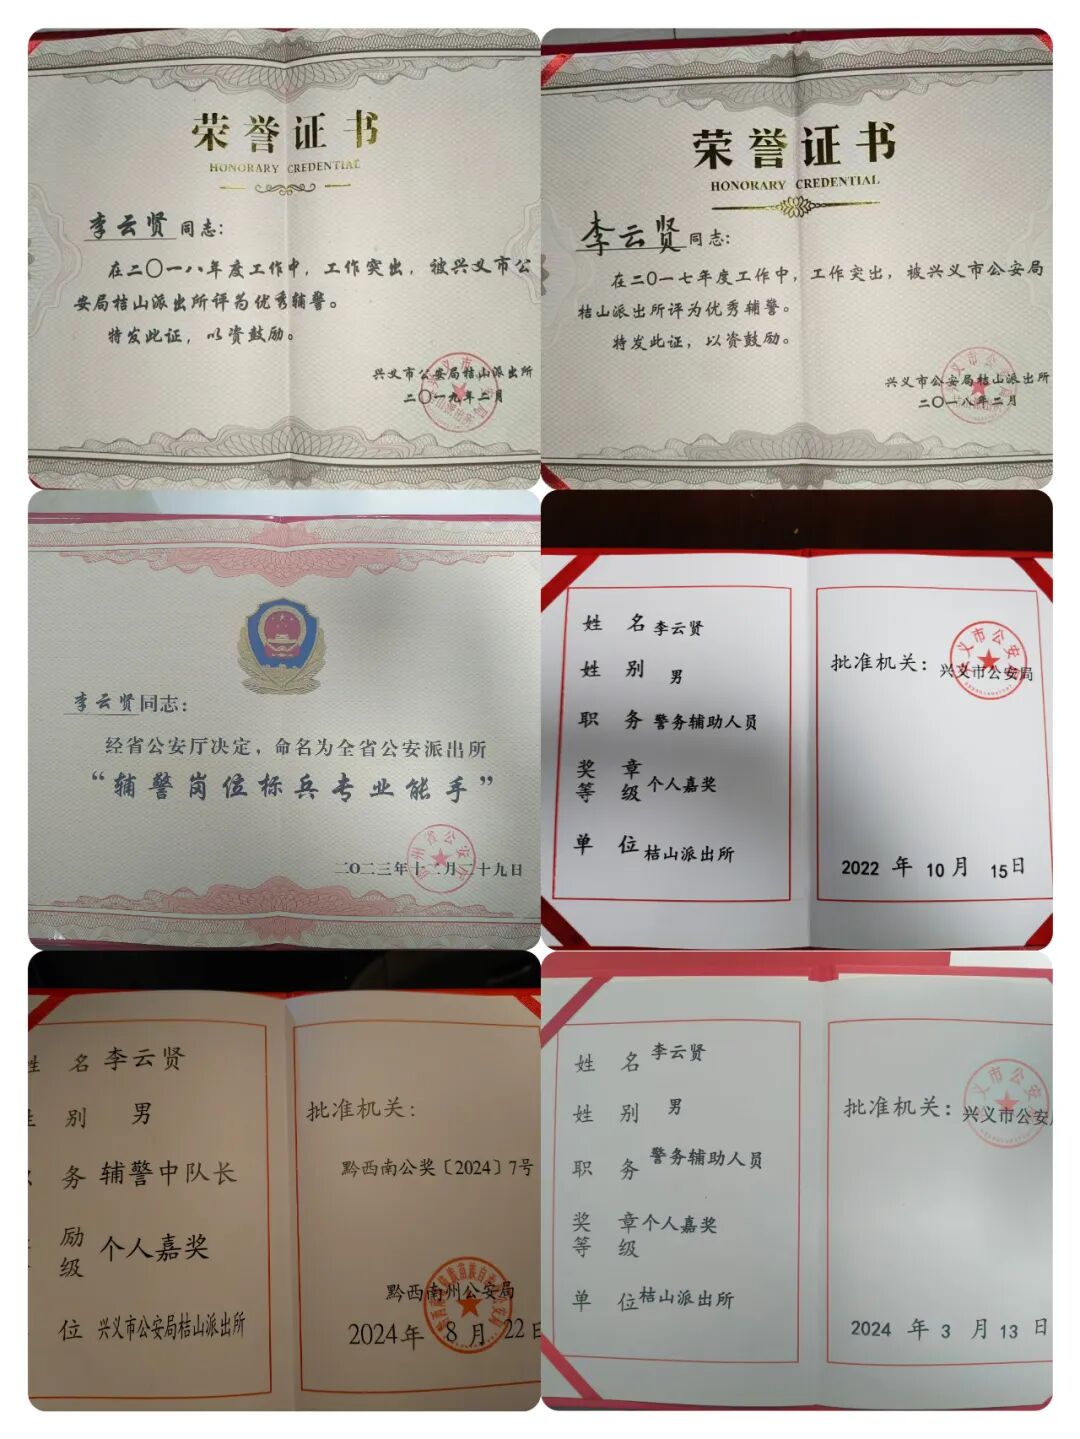 荣誉证书
HONORARY CREDENTIAL
李云贤同志：
在二〇一八年度工作中，工作突出，被兴义市公
安局桔山派出所评为优秀辅警。
特发此证，以资鼓励。
兴义市公安局桔山派出所
二〇一九年二月
荣誉证书
HONORARY CREDENTIAL
李云贤同志：
在二〇一七年度工作中，工作突出，被兴义市公安局
桔山派出所评为优秀辅警。
特发此证，以资鼓励。
兴义市公安局桔山派出所
二〇一八年二月
李云贤同志：
经省公安厅决定，命名为全省公安派出所
“辅警岗位标兵专业能手”
二〇二三年十二月二十九日
姓名 李云贤
性别 男
职务 警务辅助人员
奖章等级 个人嘉奖
单位 桔山派出所
批准机关：
兴义市公安局
2022 年 10 月 15 日
姓名 李云贤
性别 男
务 辅警中队长
励级 个人嘉奖
位 兴义市公安局桔山派出所
批准机关：
黔西南公奖〔2024〕7号
黔西南州公安局
2024年 8 月 22日
姓名 李云贤
姓别 男
职务 警务辅助人员
奖章等级 个人嘉奖
单位 桔山派出所
批准机关：
兴义市公安局
2024 年 3 月 13 日